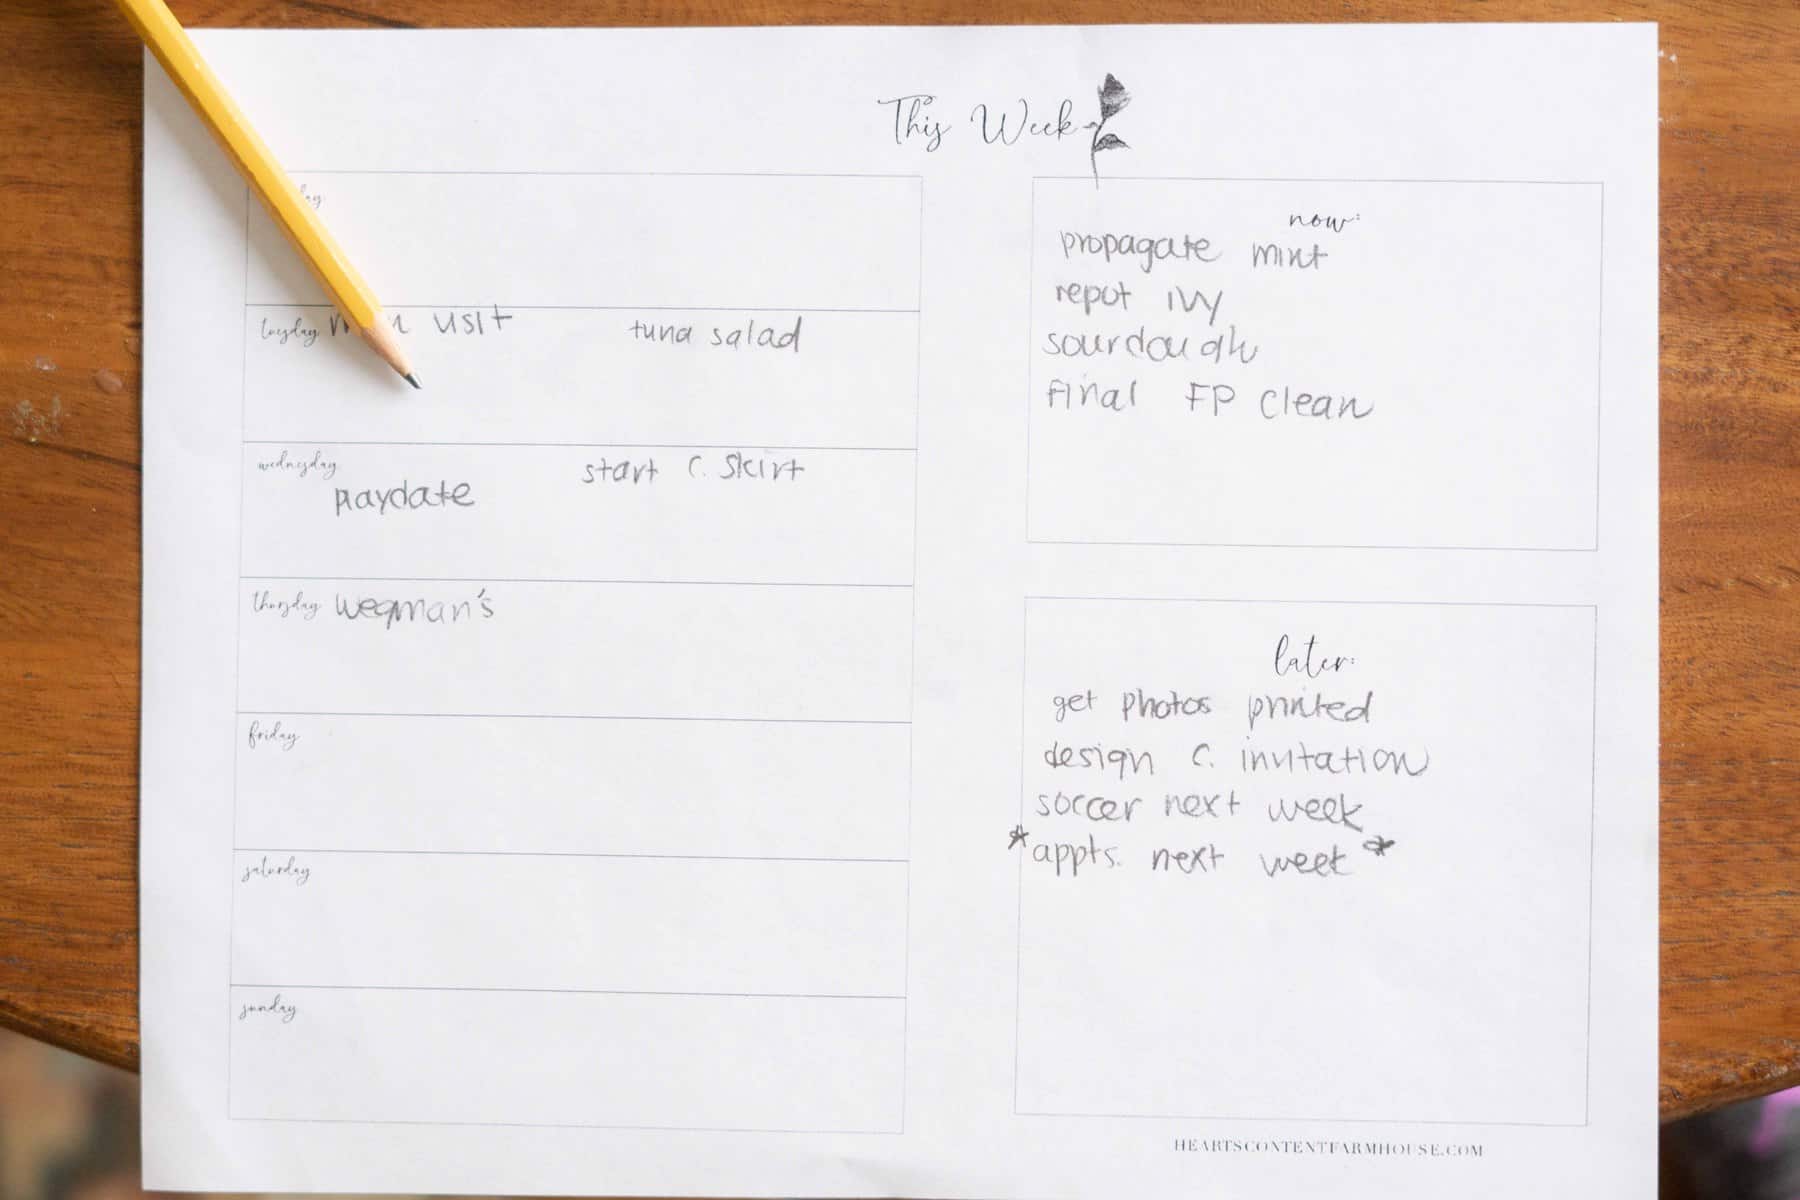 This Week
tuesday usit tuna salad
wednesday start c. skirt
playdate
thursday wegman's
friday
saturday
sunday
now:
propagate mint
repot ivy
sourdough
final FP clean
later:
get photos printed
design c. invitation
soccer next week
*appts. next week*
HEARTSCONTENTFARMHOUSE.COM